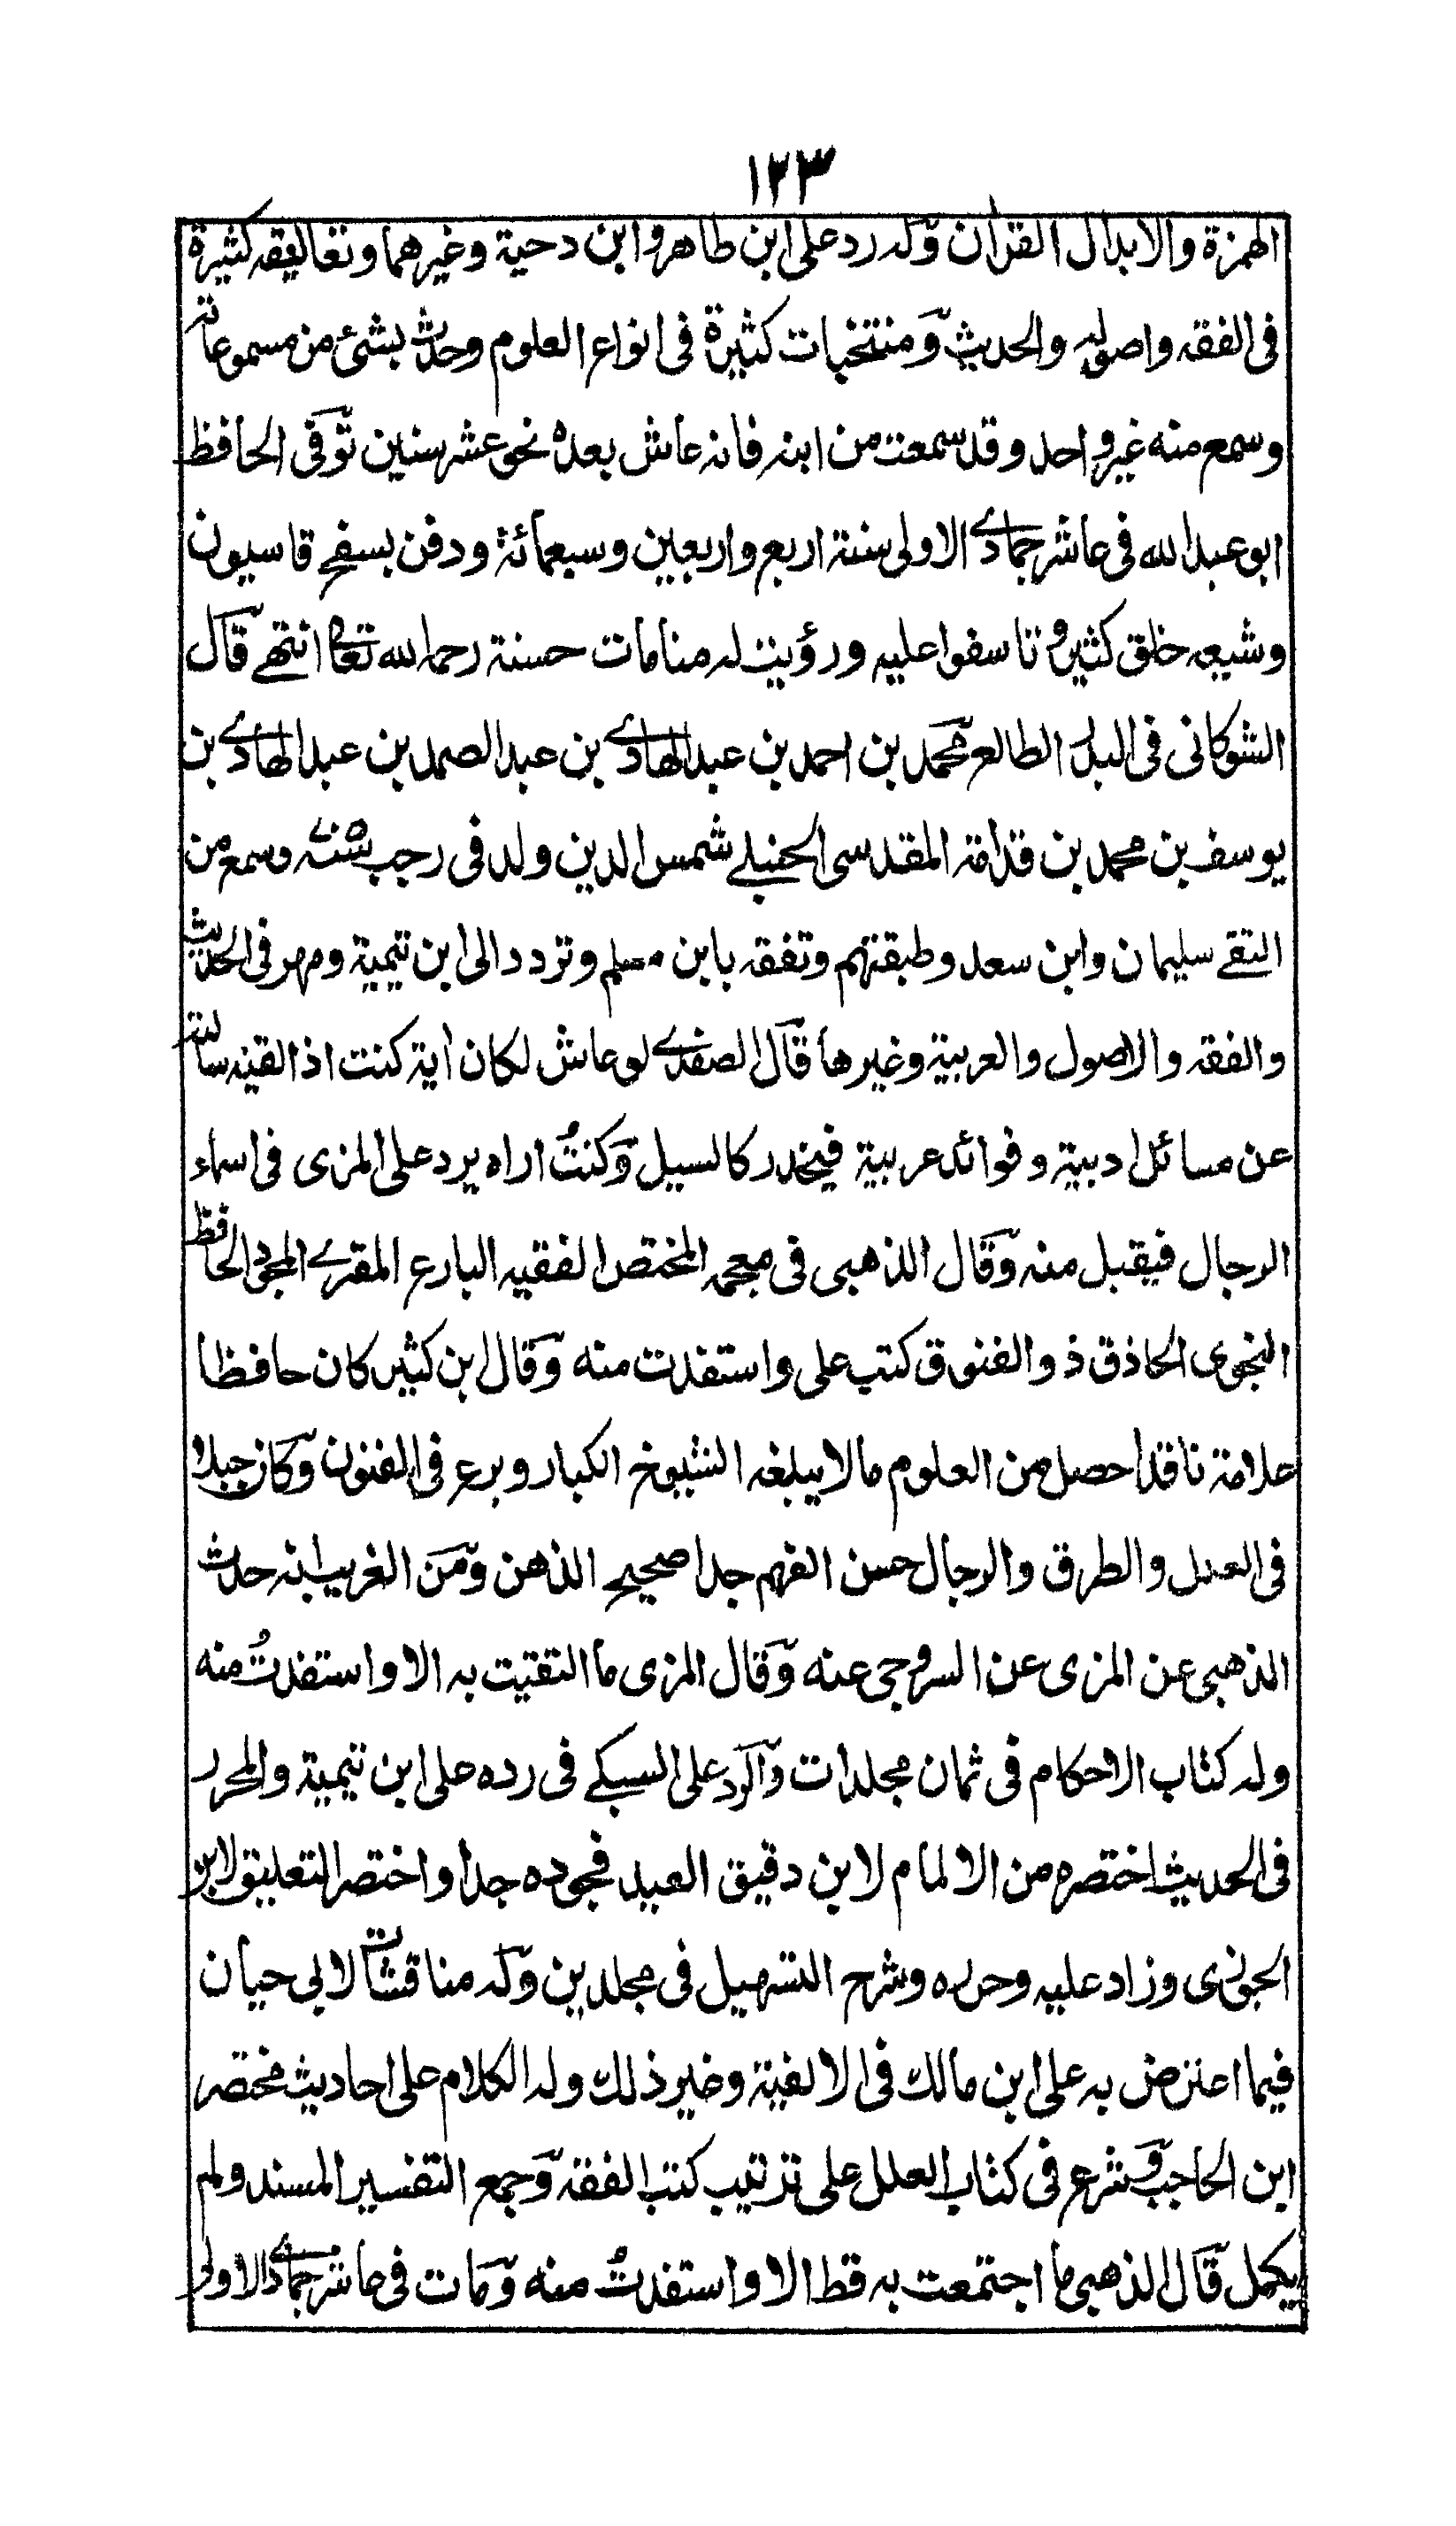 ١٢٣
الهمزة والابدال القرأن وله رد على ابن طاهر وابن دحية وغيرهما وتعاليقه كثيرة
فى الفقه واصوله والحديث ومنتخبات كثيرة فى انواع العلوم وحدث بشئ من مسموعاته
وسمع منه غير واحد وقد سمعت من ابنه فانه عاش بعده نحو عشر سنين توفى الحافظ
ابو عبد الله فى عاشر جمادى الاولى سنة اربع واربعين وسبعمائة ودفن بسفح قاسيون
وشيعه خلق كثير وتاسفوا عليه ورؤيت له منامات حسنة رحمه الله تعالى انتهے قال
الشوكانى فى البدر الطالع محمد بن احمد بن عبد الهادى بن عبد الصمد بن عبد الهادى بن
يوسف بن محمد بن قدامة المقدسى الحنبلے شمس الدين ولد فى رجب سنة وسمع من
التقے سليمان وابن سعد وطبقتهم وتفقه بابن مسلم وتردد الى ابن تيمية ومهر فى الحديث
والفقه والاصول والعربية وغيرها قال الصفدے لو عاش لكان أية كنت اذا لقيته سالته
عن مسائل ادبية وفوائد عربية فينحدر كالسيل وكنتُ اراه يرد على المزى فى اسماء
الرجال فيقبل منه وقال الذهبى فى معجمه المختص الفقيه البارع المقرے المجود الحافظ
النحوى الحاذق ذو الفنون كتب على واستفدت منه وقال ابن كثير كان حافظا
علامة ناقدا حصل من العلوم ما لا يبلغه الشيوخ الكبار وبرع فى الفنون وكان جبلا
فى العلل والطرق والرجال حسن الفهم جدا صحيح الذهن ومن الغريب انه حدث
الذهبى عن المزى عن السروجى عنه وقال المزى ما التقيت به الا واستفدتُ منه
وله كتاب الاحكام فى ثمان مجلدات والرد على السبكے فى رده على ابن تيمية والمحرر
فى الحديث اختصره من الالمام لابن دقيق العيد فجوده جدا واختصر التعليق لابن
الجوزى وزاد عليه وحرره وشرح التسهيل فى مجلدين وله مناقشات لابى حيان
فيما اعترض به على ابن مالك فى الالفية وغير ذلك وله الكلام على احاديث مختصر
ابن الحاجب وشرع فى كتاب العلل على ترتيب كتب الفقه وجمع التفسير المسند ولم
يكمل قال الذهبى ما اجتمعت به قط الا واستفدتُ منه ومات فى عاشر جمادى الاولى